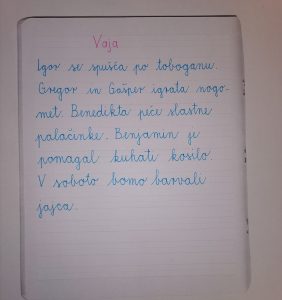 Vaja
Igor se spušča po toboganu.
Gregor in Gašper igrata nogo-
met. Benedikta peče slastne
palačinke. Benjamin je
pomagal kuhati kosilo.
V soboto bomo barvali
jajca.